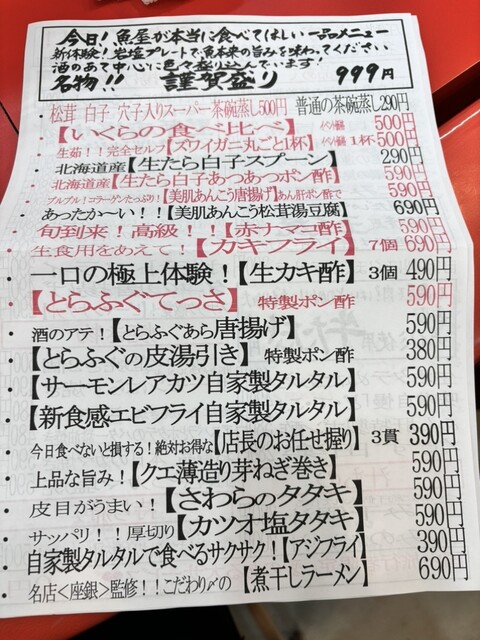 今日！魚屋が本当に食べてほしい一品メニュー
新体験！岩塩プレートで魚本来の旨みを味わってください
酒のあて中心に色々盛り込んでいます！
名物！！ 謹賀盛り 999円
・松茸 白子 穴子入りスーパー茶碗蒸し500円 普通の茶碗蒸し290円
・【いくらの食べ比べ】 500円
・生茹！！完全セルフ【ズワイガニ丸ごと1杯】 1杯500円
・北海道産【生たら白子スプーン】 290円
・北海道産【生たら白子あつあつポン酢】 590円
・プルプル！コラーゲンたっぷり！【美肌あんこう唐揚げ】あん肝ポン酢で 590円
・あったか〜い！！【美肌あんこう松茸湯豆腐】 690円
・旬到来！高級！！【赤ナマコ酢】 590円
・生食用をあえて！【カキフライ】 7個 690円
・一口の極上体験！【生カキ酢】 3個 490円
・【とらふぐてっさ】 特製ポン酢 590円
・酒のアテ！【とらふぐあら唐揚げ】 590円
・【とらふぐの皮湯引き】 特製ポン酢 380円
・【サーモンレアカツ自家製タルタル】 590円
・【新食感エビフライ自家製タルタル】 590円
・今日食べないと損する！絶対お得な【店長のお任せ握り】 3貫 390円
・上品な旨み！【クエ薄造り芽ねぎ巻き】 590円
・皮目がうまい！【さわらのタタキ】 590円
・サッパリ！！厚切り【カツオ塩タタキ】 590円
・自家製タルタルで食べるサクサク！【アジフライ】 390円
・名店＜座銀＞監修！！こだわり〆の【煮干しラーメン】 690円